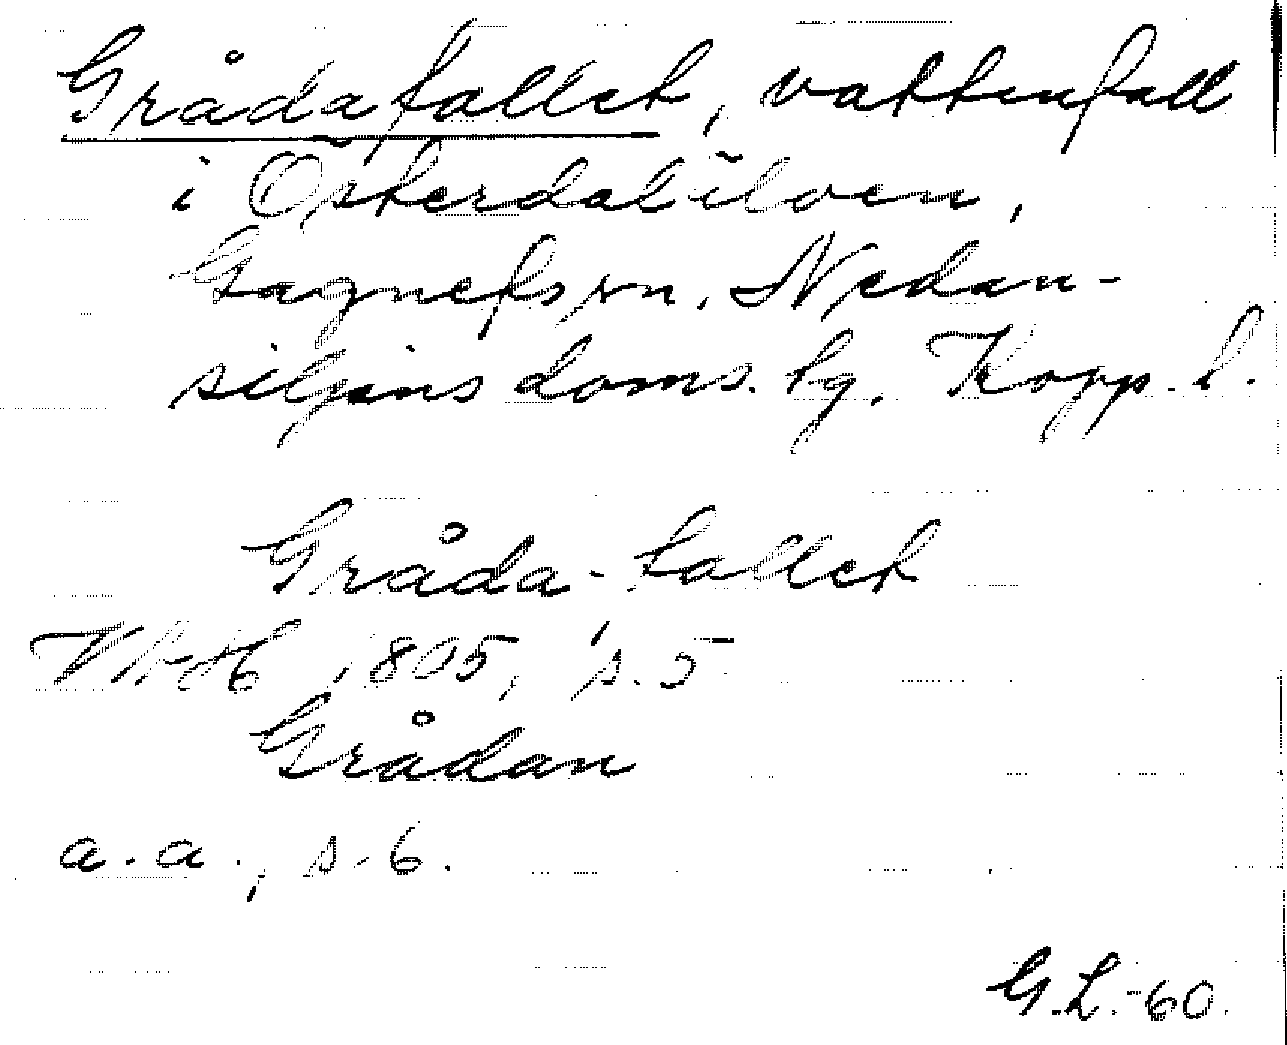 Grådafallet, vattenfall
i Österdalälven,
Gagnefs sn. Nedan-
siljans doms. tg. Kopp. l.
Gråda-fallet
VAH 1805, s. 5
Grådan
a.a., s. 6.
G.L.-60.